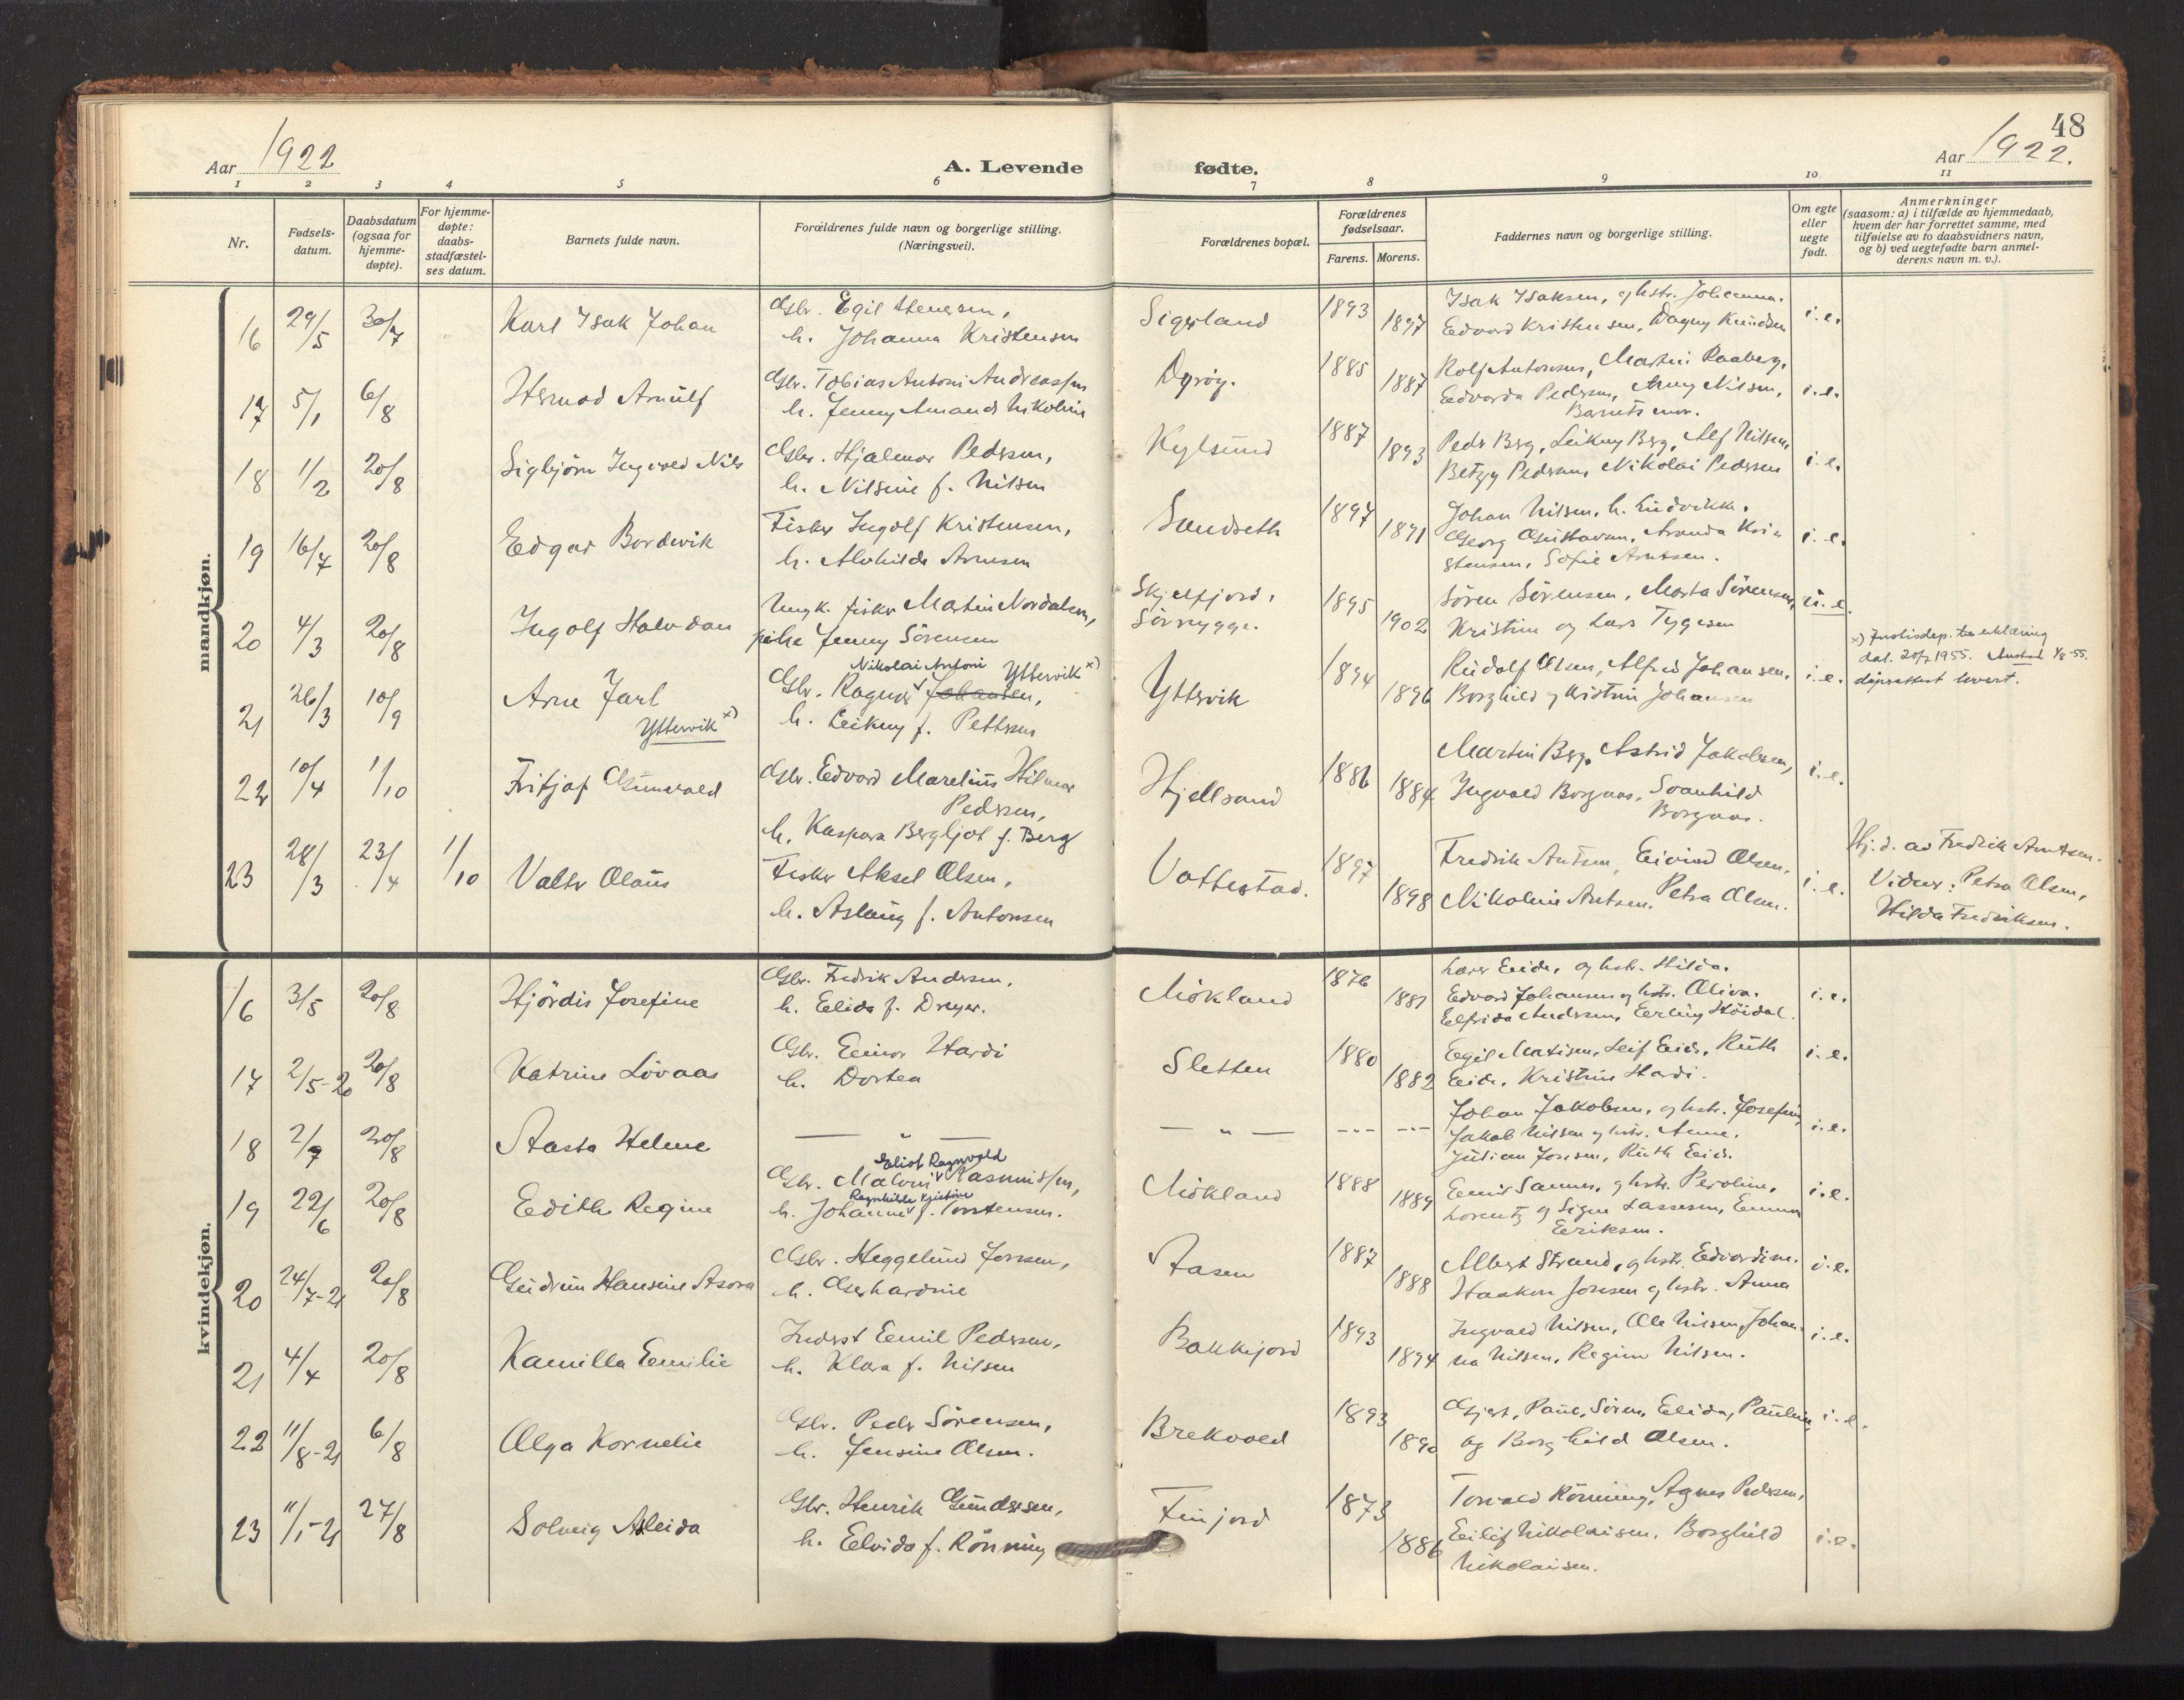 48
Aar 1922
A. Levende fødte.
Aar 1922.
1 2 3 4 5 6 7 8 9 10 11
Nr.
Fødsels-
datum.
Daabsdatum
(ogsaa for
hjemme-
døpte).
For hjemme-
døpte:
daabs-
stadfæstel-
ses datum.
Barnets fulde navn.
Forældrenes fulde navn og borgerlige stilling.
(Næringsvei).
Forældrenes bopæl.
Forældrenes
fødselsaar.
Farens. Morens.
Faddernes navn og borgerlige stilling.
Om egte
eller
uegte
født.
Anmerkninger
(saasom: a) i tilfælde av hjemmedaab,
hvem der har forrettet samme, med
tilføielse av to daabsvidners navn,
og b) ved uegtefødte barn anmel-
derens navn m. v.).
mandkjøn.
16 29/5 30/7 Karl Isak Johan
Gbr. Egil
h. Johanna Kristensen
Sigerland 1893 1897
Isak Isaksen, og hstr. Johanna.
Edvard Kristensen, Dagny Knudsen
i.e.
17 5/1 6/8 Hermod Arnulf
Gbr. Tobias Antoni Andreassen
h. Jenny Amanda Nikoline
Dyrøy. 1885 1887
Rolf Antonsen, Martin Raaberg,
Edvarda Pedersen, Nilsen,
Barnets mor.
i.e.
18 1/2 20/8 Sigbjørn Ingvald Nils
Gbr. Hjalmar Pedersen,
h. Nilsine f. Nilsen
1887 1893
Peder Berg, Leikny Berg, Alf Nilsen,
Betzy Pedersen, Nikolai Pedersen
i.e.
19 16/7 20/8 Edgar Bordevik
Fisker Ingolf Kristensen,
h. Alvhilde Arnesen
Sandseth 1897 1891
Johan Nilsen, h. Ludvikke.
Georg Gustavsen, Aranda Kri-
stensen, Sofie Arntsen.
i.e.
20 4/3 20/8 Ingolf Halvdan
Ungk. fisker Martin Nordalsen,
pike Jenny Sørensen
Skjelfjord,
Sørrygge. 1895 1902
Søren Sørensen, Marta Sørensen,
Kristine og Lars Tygesen
u.e.
21 26/3 10/9 Arne Jarl
Yttervik x)
Nikolai Antoni Yttervik x)
Gbr. Ragnar Johansen,
h. Leikny f. Pettersen
Yttervik 1894 1896
Rudolf Olsen, Alfred Johansen,
Borghild og Kristine Johansen
i.e.
x) Justisdep. tes erklæring
dat. 20/7 1955. 1/8-55.
dåpsattest levert.
22 10/4 1/10 Fritjof Gunvald
Gbr. Edvard Marelius Hilmar
Pedersen,
h. Kaspara Bergljot f. Berg
Hjellsand 1886 1884
Martin Berg, Astrid Jakobsen,
Ingvald Borgaas, Svanhild
Borgaas.
i.e.
23 28/3 23/4 1/10 Valter Olaus
Fisker Aksel Olsen,
h. Aslaug f. Antonsen
Vottestad. 1897 1898
Fredrik Antsen, Eivind Olsen,
Nikoline Antsen, Petra Olsen.
i.e.
Hj. d. av Fredrik Arntsen.
Vidner: Petra Olsen,
Hilda Fredriksen.
kvindekjøn.
16 3/5 20/8 Hjördis Josefine
Gbr. Fredrik Andersen,
h. Elida f. Dreyer.
Mökland 1876 1881
Lærer Eide, og hstr. Hilda.
Edvard Johansen og hstr. Oliva.
Elfrida Andersen, Erling Höidal.
i.e.
17 2/5-20 20/8 Katrine Lövaas
Gbr. Einar Hardi
h. Dortea
Sletten 1880 1882
Egil Matisen, Leif Eide, Ruth
Eide, Kristine Hardi.
i.e.
18 2/7 20/8 Aasta Helene
— " — — " — --- ---
Johan Jakobsen, og hstr. Josefine,
Jakob Nilsen og hstr. Anne.
Julian Jonsen, Ruth Eide.
i.e.
19 22/6 20/8 Edith Regine
Eliot Ragnvald
Gbr. Malvin Rasmussen,
Ragnhilde Kristine
h. Johanne f. Torstensen.
Mökland 1888 1889
Emil Sannes, og hstr. Peroline,
Lorentz og Signe Lassesen, Emma
Eriksen.
i.e.
20 24/7-21 20/8 Gudrun Hansine Asora
Gbr. Heggelund Jonsen,
h. Gerhardine
Aasen 1887 1888
Albert Strand, og hstr. Edvardine.
Haakon Jonsen og hstr. Anna
i.e.
21 4/4 20/8 Kamilla Emilie
Inderst Emil Pedersen,
h. Klara f. Nilsen
Bakkejord 1893 1894
Ingvald Nilsen, Ole Nilsen, Johan-
na Nilsen, Regine Nilsen.
i.e.
22 11/8-21 6/8 Olga Kornelie
Gbr. Peder Sörensen,
h. Jensine Olsen.
Brekvold 1893 1890
Gjert, Paul, Sören, Elida, Pauline
og Borghild Olsen.
i.e.
23 11/1-21 27/8 Solveig Asleida
Gbr. Henrik Gundersen,
h. Elvida f. Rönning
Finjord 1873 1886
Torvald Rönning, Agnes Pedersen,
Eilif Nikolaisen, Borghild
Nikolaisen.
i.e.